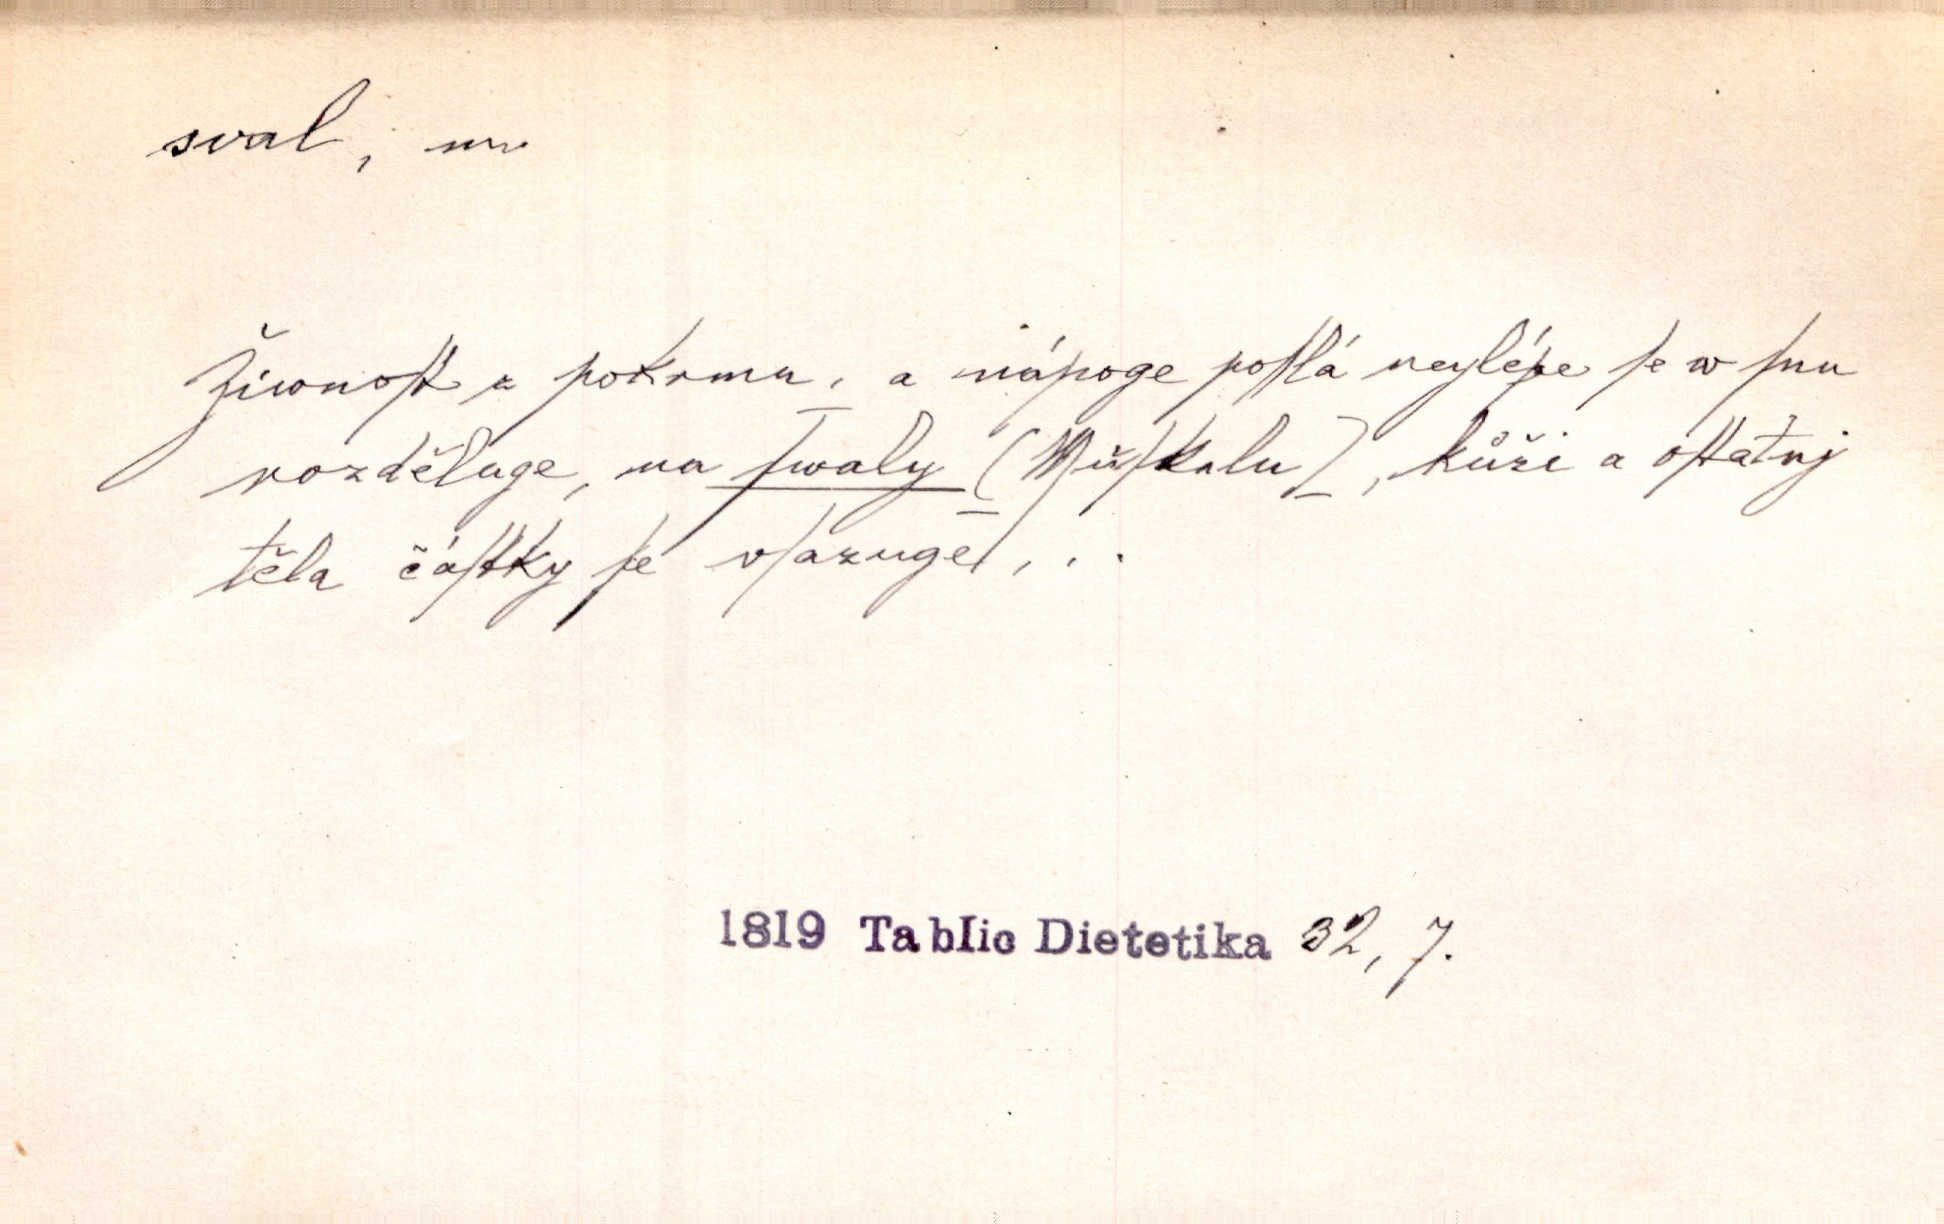 sval, m.
Žiwnoſt z pokrmu, a nápoge poſſlá neylépe ſe w ſnu
rozděluge, na ſwaly (Muſkulu), kůži a oſtatnj
těla čáſtky ſe vſazuge, . .
1819 Tablic Dietetika 32, 7.